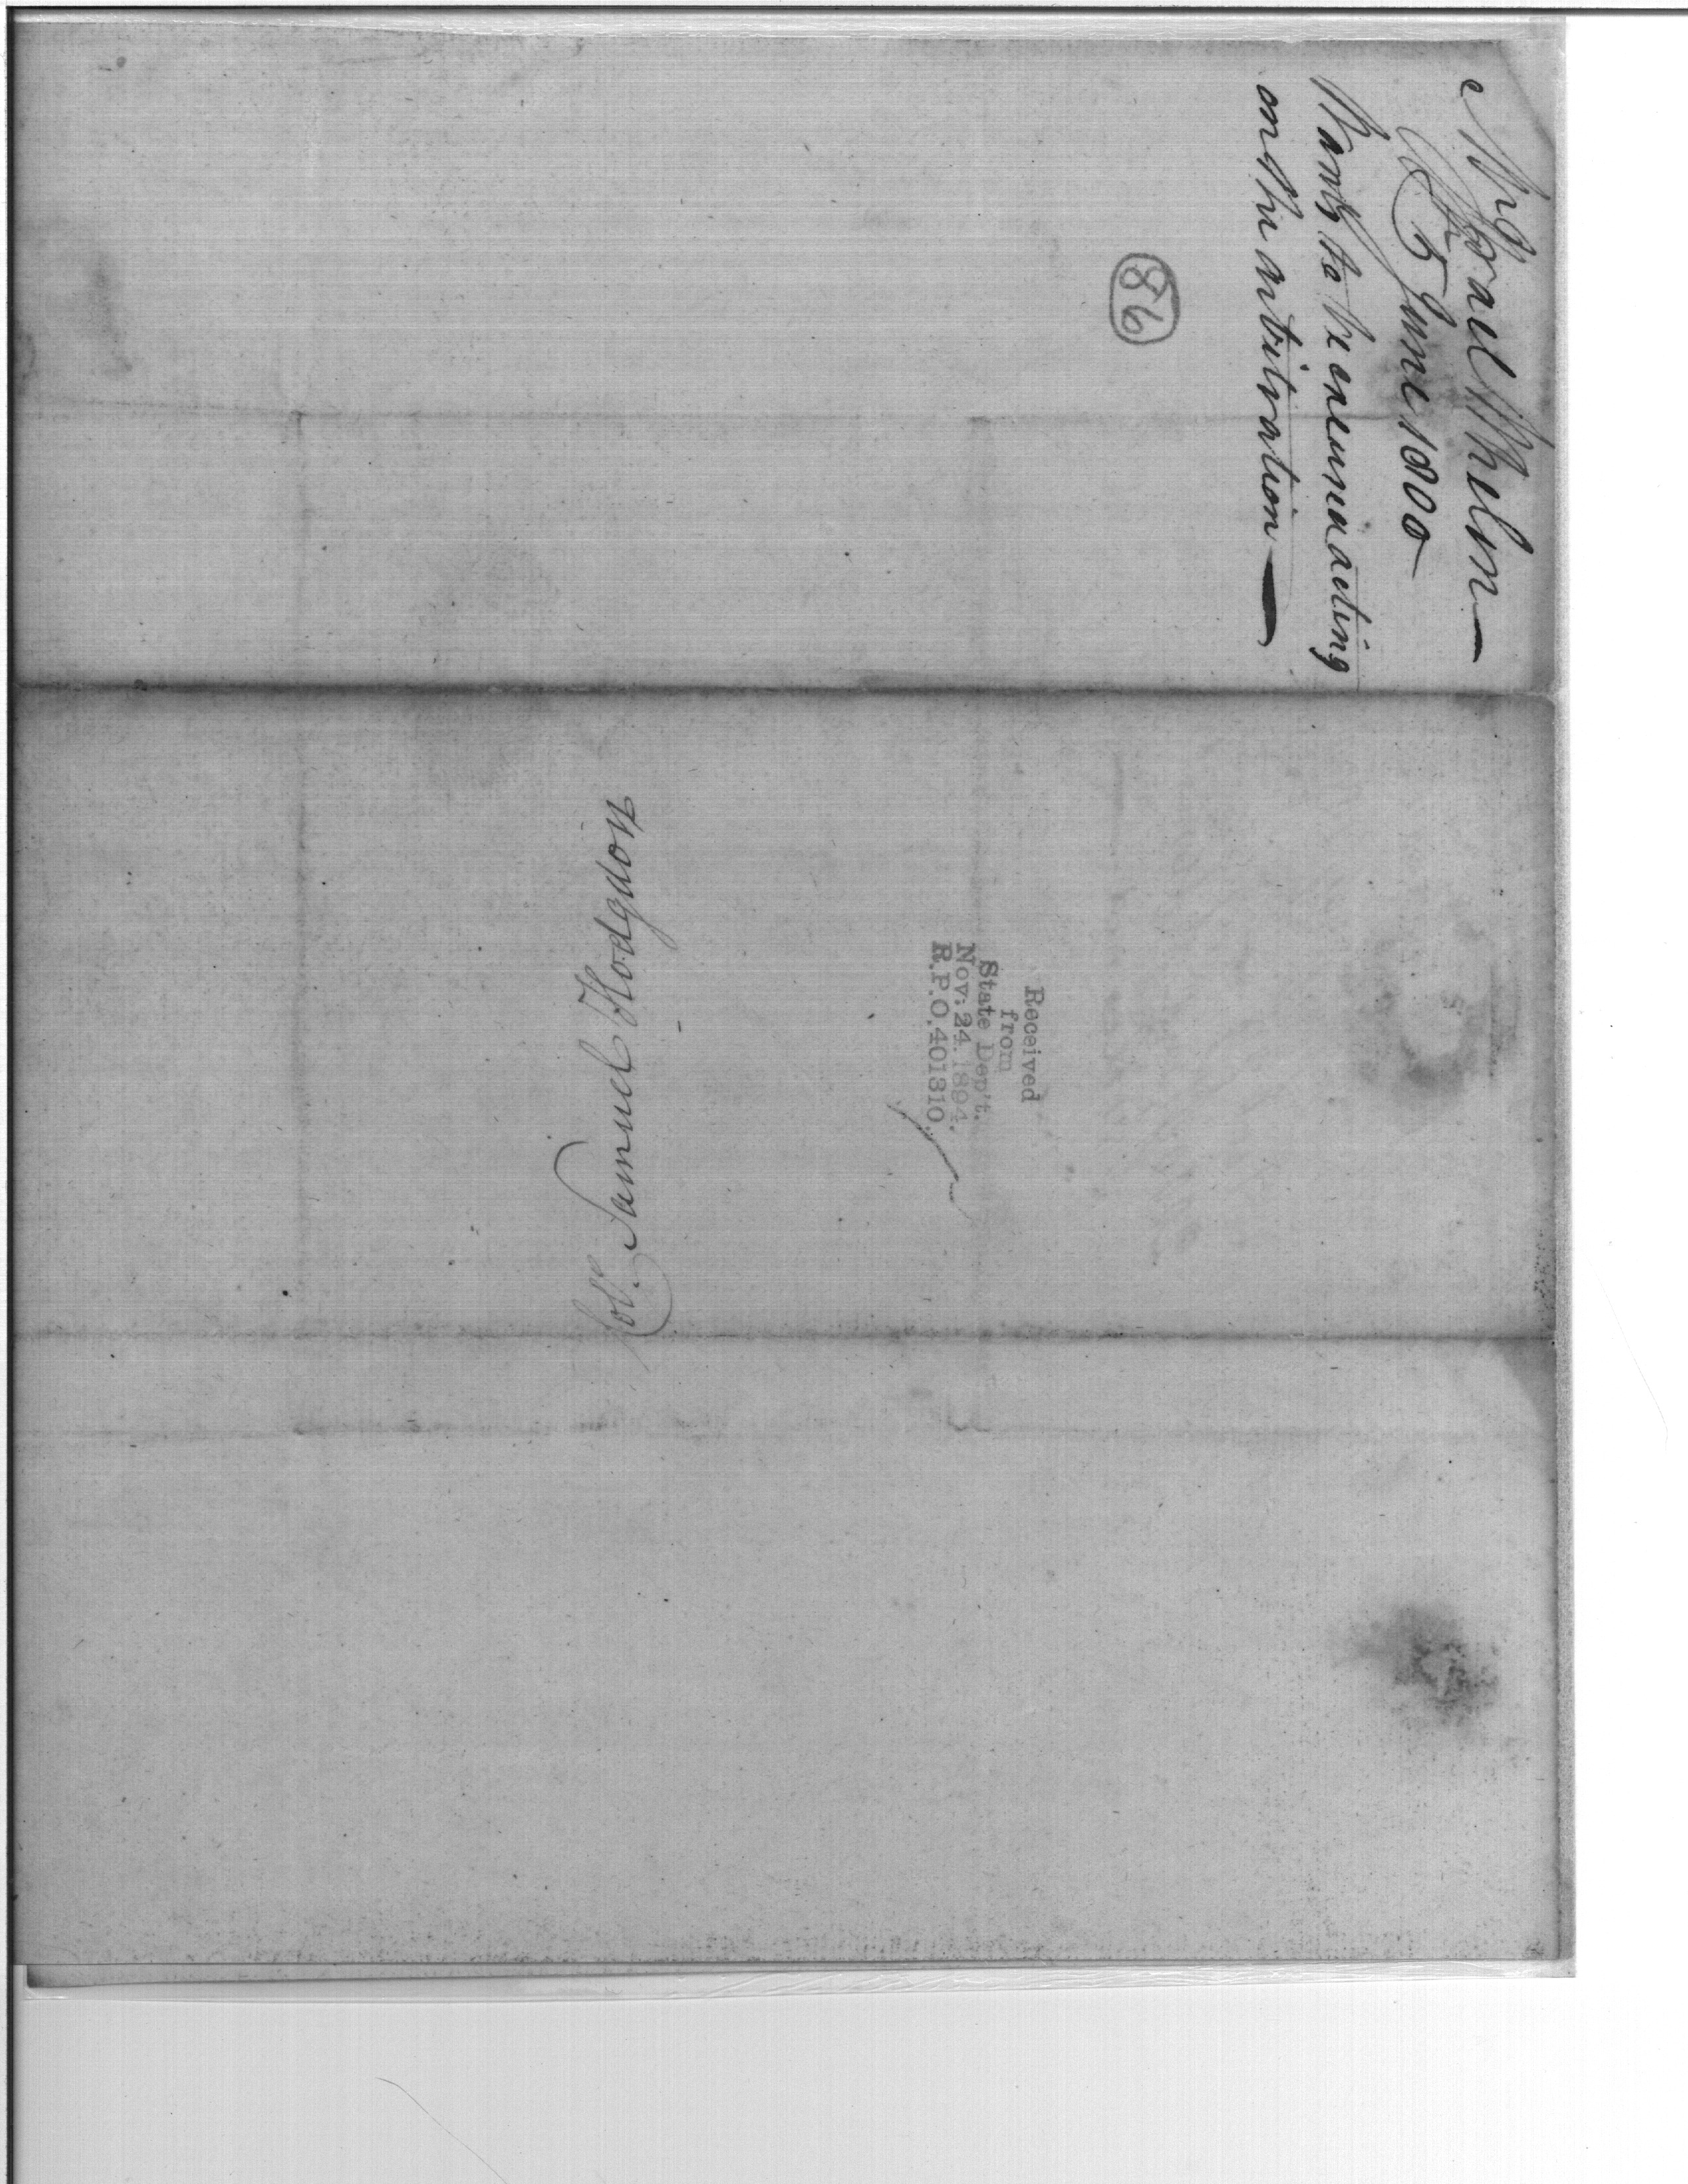 Mr Israel Whelen
5 June 1800
Wants to be one in acting
on the arbitration
86
Received
from
State Dep't.
Nov: 24. 1894.
R.P.O. 401310.
Col. Samuel Hodgdon